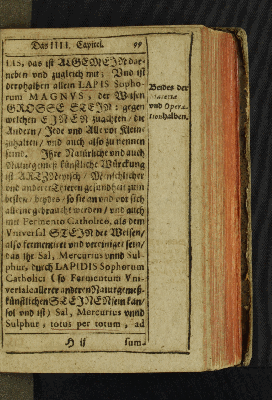 Das IIII. Capitel. 99
LIS, das ist ALGEMEIN dar-
neben und zugleich mit; Und ist
derohalben allein LAPIS Sopho-
rum MAGNVS, der Weisen
GROSSE STEIN; gegen
welchen EINEN zu achten / die
Andern / Jede und Alle vor Klein-
zuhalten / und auch also zu nennen
sind. Ihre Natürliche und auch
Naturgemeß künstliche Würckung
ist ARTZNeyisch / Menschlicher
und anderer Thieren gesundheit zum
besten / beydes / so sie an und vor sich
alleine gebraucht werden / und auch
mit Fermento Catholico, als dem
Vniversal STEIN der Weisen /
also fermentiret und vereiniget sein /
das ihr Sal, Mercurius unnd Sul-
phur, durch LAPIDIS Sophorum
Catholici (so Fermentum Vni-
versale allerer anderen Naturgemeß-
künstlichen STEINEN sein kan /
sol und ist) Sal, Mercurius unnd
Sulphur, totus per totum, ad
H ij sum-
Beides der
Materia
und Opera-
tion halben.